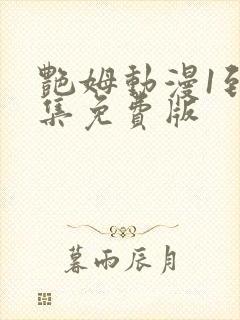 艷姆動漫1到
集免費版
暮雨辰月